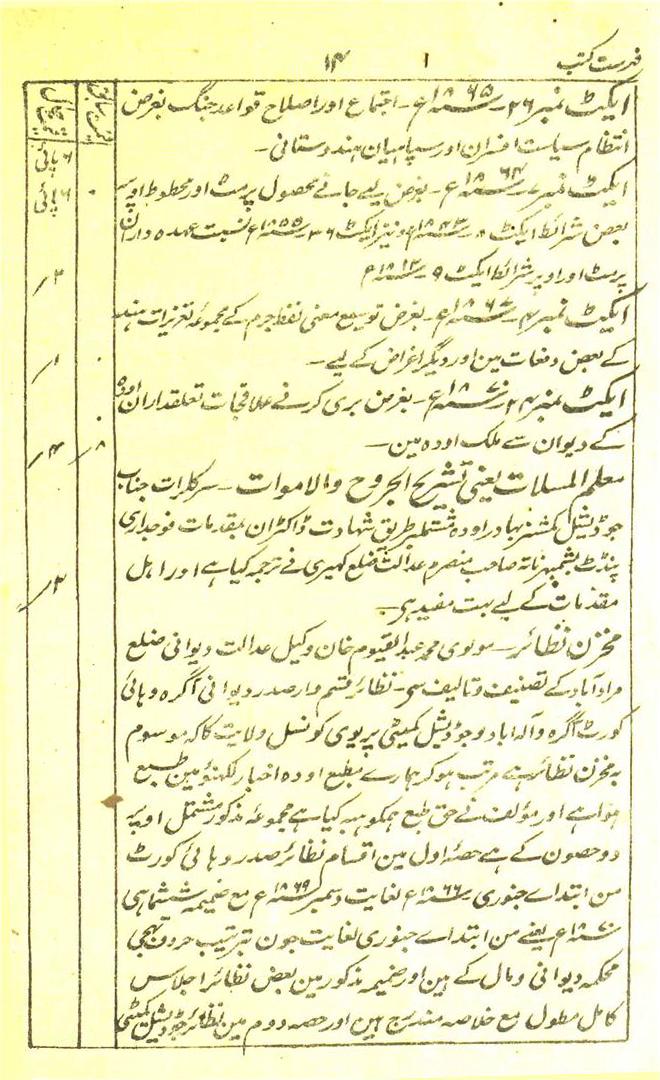 فہرست کتب
۱
۱۴
قیمت سابق
قیمت حال
ایکٹ نمبر ۲۶ سنہ ۱۸۶۵ع ۔ اجتماع اور اصلاح قواعد جنگ بغرض
انتظام سیاست افسران اور سپاہیان ہندوستانی ۔
۶ پائی
ایکٹ نمبر سنہ ۱۸۶۴ع ۔ بغرض لیے جانے محصول پرمٹ اور محطوط اوپر
۶ پائی
بعض شرائط ایکٹ سنہ ۱۸۴۳ع و نیز ایکٹ ۳۶ سنہ ۱۸۵۵ع نسبت عہدہ داران
پرمٹ اور اوپر شرائط ایکٹ ۹
۳؍
ایکٹ نمبر ۴ سنہ ۱۸۶۷ع ۔ بغرض توسیع معنی لفظ جرم کے مجموعہ تعزیرات ہند
کے بعض دفعات مین اور دیگر اغراض کے لیے ۔
۱؍
ایکٹ نمبر ۲۴ سنہ ۱۸۷۰ع ۔ بغرض بری کرنے علاقجات تعلقداران اودہ
کے دیوان سے ملک اودہ مین ۔
۸؍
۴؍
معلم المسلات یعنی تشریح الجروح والاموات ۔ سرکلرات جناب
جوڈیشل کمشنر بہادر اودہ مشتملہ طریق شہادت ڈاکٹران بمقدمات فوجداری
پنڈت بشمبھر ناتہ صاحب منصرم عدالت ضلع کھیری نے ترجمہ کیا ہے اور اہل
مقدمات کے لیے بہت مفید ہی ۔
۳؍
مخزن نظائر ۔ مولوی محمد عبدالقیوم خان وکیل عدالت دیوانی ضلع
مرادآباد کے تصنیف و تالیف سی ۔ نظائر قسم وار صدر دیوانی آگرہ و ہائی
کورٹ آگرہ و آلہ اباد و جوڈیشل کمیٹی پریوی کونسل ولایت کا کہ موسوم
بہ مخزن نظائر ہے مرتب ہوکر ہمارے مطبع اودہ اخبار لکھنؤ مین طبع
ہوا ہے اور مؤلف نے حق طبع ہمکو ہبہ کیا ہے مجموعہ مذکور مشتمل اوپر
دو حصون کے ہے حصۂ اول مین اقسام نظائر صدر و ہائی کورٹ
من ابتداے جنوری سنہ ۱۸۶۶ع لغایت دسمبر سنہ ۱۸۶۹ع مع ضمیمہ ششماہی
سنہ ۱۸۷۰ع یعنے من ابتداے جنوری لغایت جون بترتیب حروف تہجی
محکمہ دیوانی و مال کے ہین اور ضمیمہ مذکور مین بعض نظائر اجلاس
کامل مطول مع خلاصہ مندرج ہین اور حصہ دوم مین نظائر جوڈیشل کمیٹی